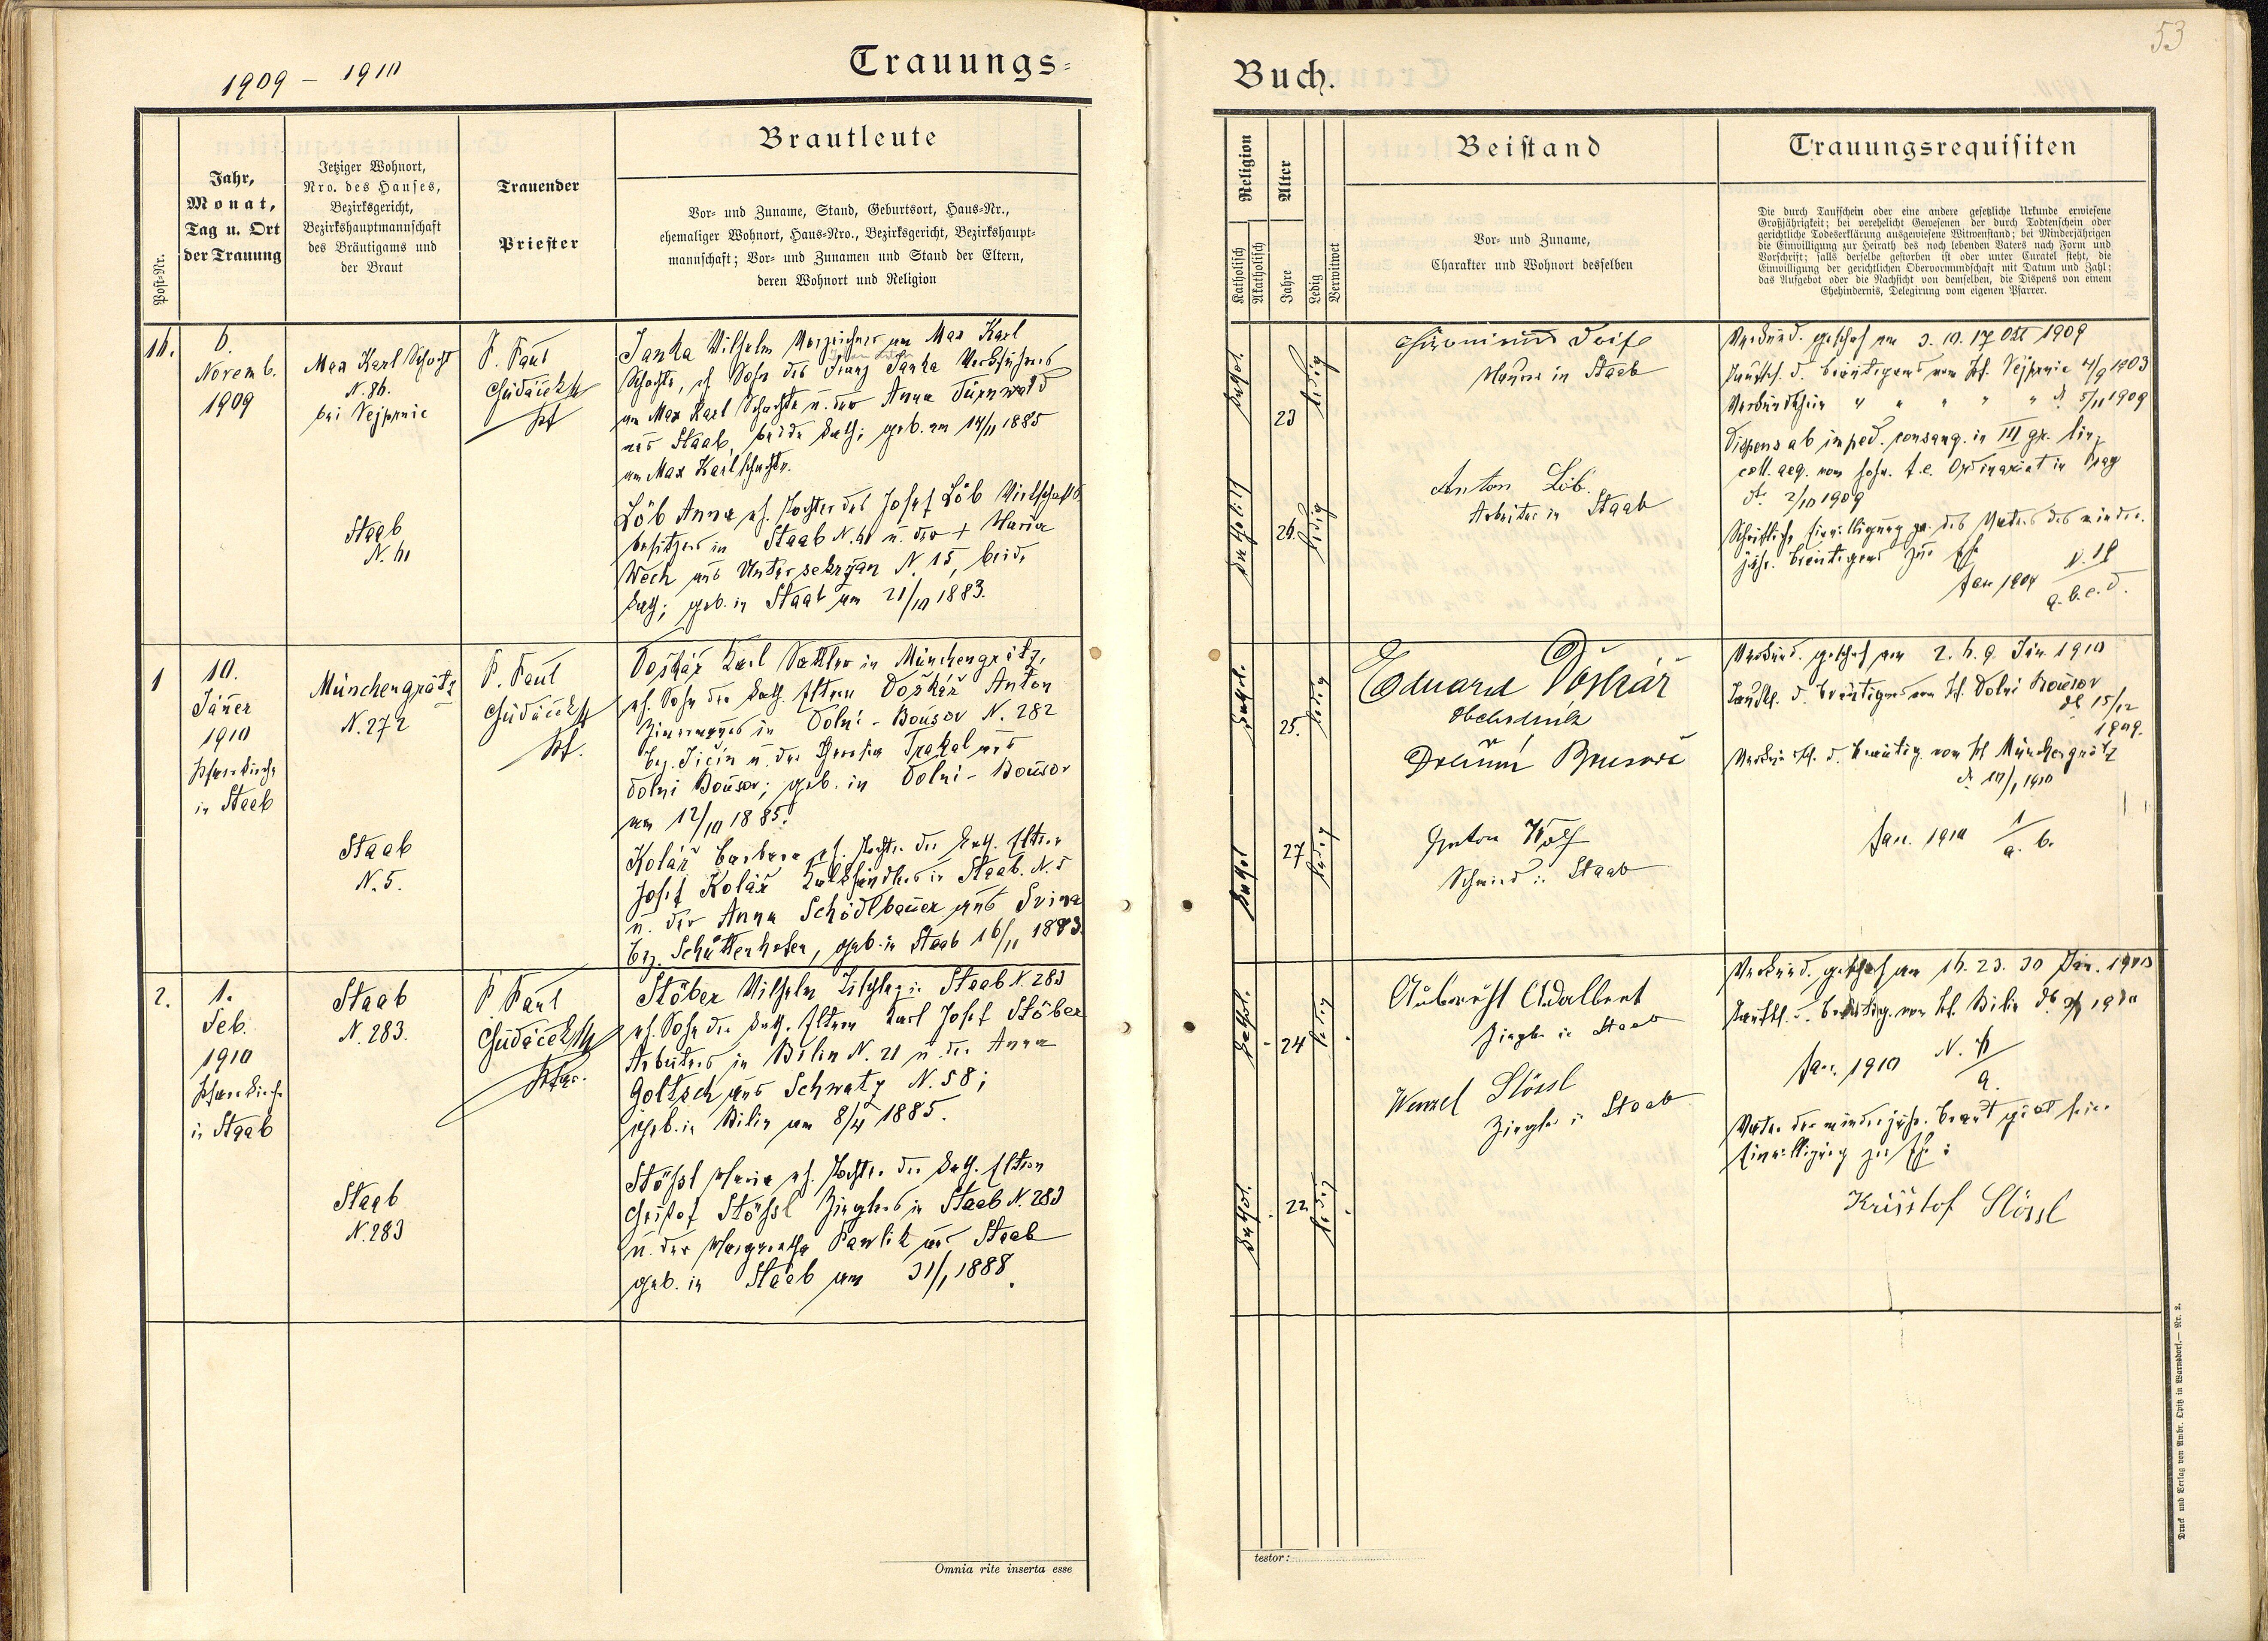 53
1909 - 1910
Trauungs-
Buch.
Post-Nr.
Jahr,
Monat,
Tag u. Ort
der Trauung
Jetziger Wohnort,
Nro. des Hauses,
Bezirksgericht,
Bezirkshauptmannschaft
des Bräutigams und
der Braut
Trauender
Priester
Brautleute
Vor- und Zuname, Stand, Geburtsort, Haus-Nr.,
ehemaliger Wohnort, Haus-Nro., Bezirksgericht, Bezirkshaupt-
mannschaft; Vor- und Zunamen und Stand der Eltern,
deren Wohnort und Religion
Religion
Katholisch
Akatholisch
Alter
Jahre
Ledig
Verwitwet
Beistand
Vor- und Zuname,
Charakter und Wohnort desselben
Trauungsrequisiten
Die durch Taufschein oder eine andere gesetzliche Urkunde erwiesene
Großjährigkeit; bei verehelicht Gewesenen der durch Todtenschein oder
gerichtliche Todeserklärung ausgewiesene Witwenstand; bei Minderjährigen
die Einwilligung zur Heirath des noch lebenden Vaters nach Form und
Vorschrift; falls derselbe gestorben ist oder unter Curatel steht, die
Einwilligung der gerichtlichen Obervormundschaft mit Datum und Zahl;
das Aufgebot oder die Nachsicht von demselben, die Dispens von einem
Ehehindernis, Delegirung vom eigenen Pfarrer.
16.
6.
Novemb.
1909
Max Karl Schacht
N. 86.
bei Vejprnic
Staab
N. 41
P. Paul
Gudáček
Pf
Janka Wilhelm am Max Karl
Schachte, eh. Sohn des Franz Janka Werkführers
am Max Karl Schachte u. der Anna Türnwald
aus Staab, beide kath; geb. am 14/11 1885
am Max Karl Schachte.
Löb Anna eh. Tochter des Josef Löb Wirtschafts
besitzers in Staab N. 41 u. der + Maria
Wech aus Untersekrzan N. 15, beide
kath; geb. in Staab am 21/10 1883.
kathol.
23
ledig
katholisch
26.
ledig
in Staab
Anton Löb.
Arbeiter in Staab
Verkünd. geschah am 3. 10. 17 Okt 1909
Taufsch. d. Bräutigams vom Pf. Vejprnic 4/9 1903
Verkündschein " " " " " d. 5/11 1909
Dispens ab imped. consang. in III gr. lin.
coll. aeq. vom hohw. f. e. Ordinariat in Prag
dt. 2/10 1909
Schriftliche Einwilligung des Vaters des minder-
jähr. Bräutigams zur Ehe
a. b. c. d.
1
10.
Jäner
1910
Pfarrkirche
in Staab
Münchengrätz
N. 272
Staab
N. 5.
P. Paul
Gudáček
Pf.
Doškář Karl Sattler in Münchengrätz,
eh. Sohn der kath. Eltern Doškář Anton
Zimermanns in Dolni-Bousov N. 282
Bez. Jicin u. der Trakal aus
Dolni Bousov; geb. in Dolni-Bousov
am 12/10 1885.
Kolář Barbara eh. Tochter der kath. Eltern
Josef Kolář in Staab. N. 5
u. der Anna Schödlbauer aus
Bez. Schüttenhofen, geb. in Staab 16/11 1883.
kathol.
25.
ledig
kathol
27
ledig
Eduard Doškář
Anton Wolf
Schmied in Staab
Verkünd. geschah am 2. 6. 9. Jän 1910
Taufsch. d. Bräutigams vom Pf. Dolni Bousov
dt 15/12
1909.
Verkündsch. d. Bräutig. vom Pf Münchengrätz
dt 10/1 1910
Fasc. 1910 1/a. b.
2.
1.
Feb.
1910
Pfarrkirche
in Staab
Staab
N. 283.
Staab
N. 283
P. Paul
Gudáček
Pfar.
Stöber Wilhelm in Staab N. 283
eh. Sohn der kath. Eltern Karl Josef Stöber
Arbeiters in Bilin N. 21 u. der Anna
Goltsch aus Schwatz N. 58;
geb. in Bilin am 8/4 1885.
Stößl Maria eh. Tochter der kath. Eltern
Christof Stößl Zieglers in Staab N. 283
u. der Margaretha Pawlik aus Staab
geb. in Staab am 31/1 1888.
kathol.
24
ledig
kathol.
22
ledig
Aubrecht Adalbert
Ziegler in Staab
Wenzel Stössl
Ziegler in Staab
Verkünd. geschah am 16. 23. 30 Jän. 1910
Taufsch. d. Bräutig. vom Pf. Bilin 1910
Fasc. 1910
a.
Vater der minderjähr. Braut gibt seine
Einwilligung zur Ehe:
Krištof Stössl
Omnia rite inserta esse
testor:
Druck und Verlag von Ambr. Opitz in Warnsdorf. — Nr. 2.